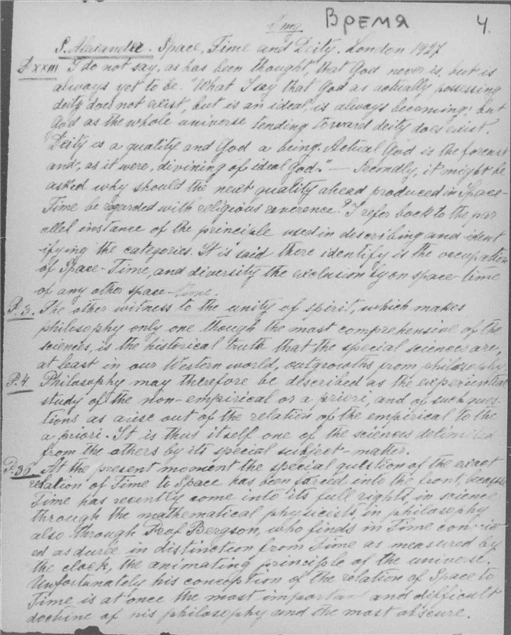 Время
4.
S. Alexander. Space, Time and Deity. London 1927
P. XXIII I do not say, as has been thought, that God never is, but is
always yet to be. What I say that God as actually possessing
deity does not exist, but is an ideal, is always becoming; but
God as the whole universe tending toward deity does exist.
Deity is a quality and God a being. Actual God is the forecast
and, as it were, divining of ideal God." — Secondly, it might be
asked why should the next quality ahead produced in Space-
Time be regarded with religious reverence? I refer back to the par
allel instance of the principle used in describing and ident
ifying the categories. It is said there identify is the occupation
of Space-Time, and diversity the exclusion by on space-time
of any other space-time.
P. 3. The other witness to the unity of spirit, which makes
philosophy only one though the most comprehensive of the
sciences, is the historical truth that the special sciences are,
at least in our Western world, outgrowths from philosophy
P. 4 Philosophy may therefore be described as the experiential
study of the non-empirical or a priori, and of such ques-
tions as arise out of the relation of the empirical to the
a priori. It is thus itself one of the sciences delimited
from the others by its special subject-matter.
At the present moment the special question of the exact
relation of Time to Space has been forced into the front, because
Time has recently come into its full rights, in science
through the mathematical physicists in philosophy
also through Prof Bergson, who finds in Time conceiv-
ed as durée in distinction from Time as measured by
the clock, the animating principle of the universe.
Unfortunately his conception of the relation of Space to
Time is at once the most important and difficult
doctrine of his philosophy and the most obscure.